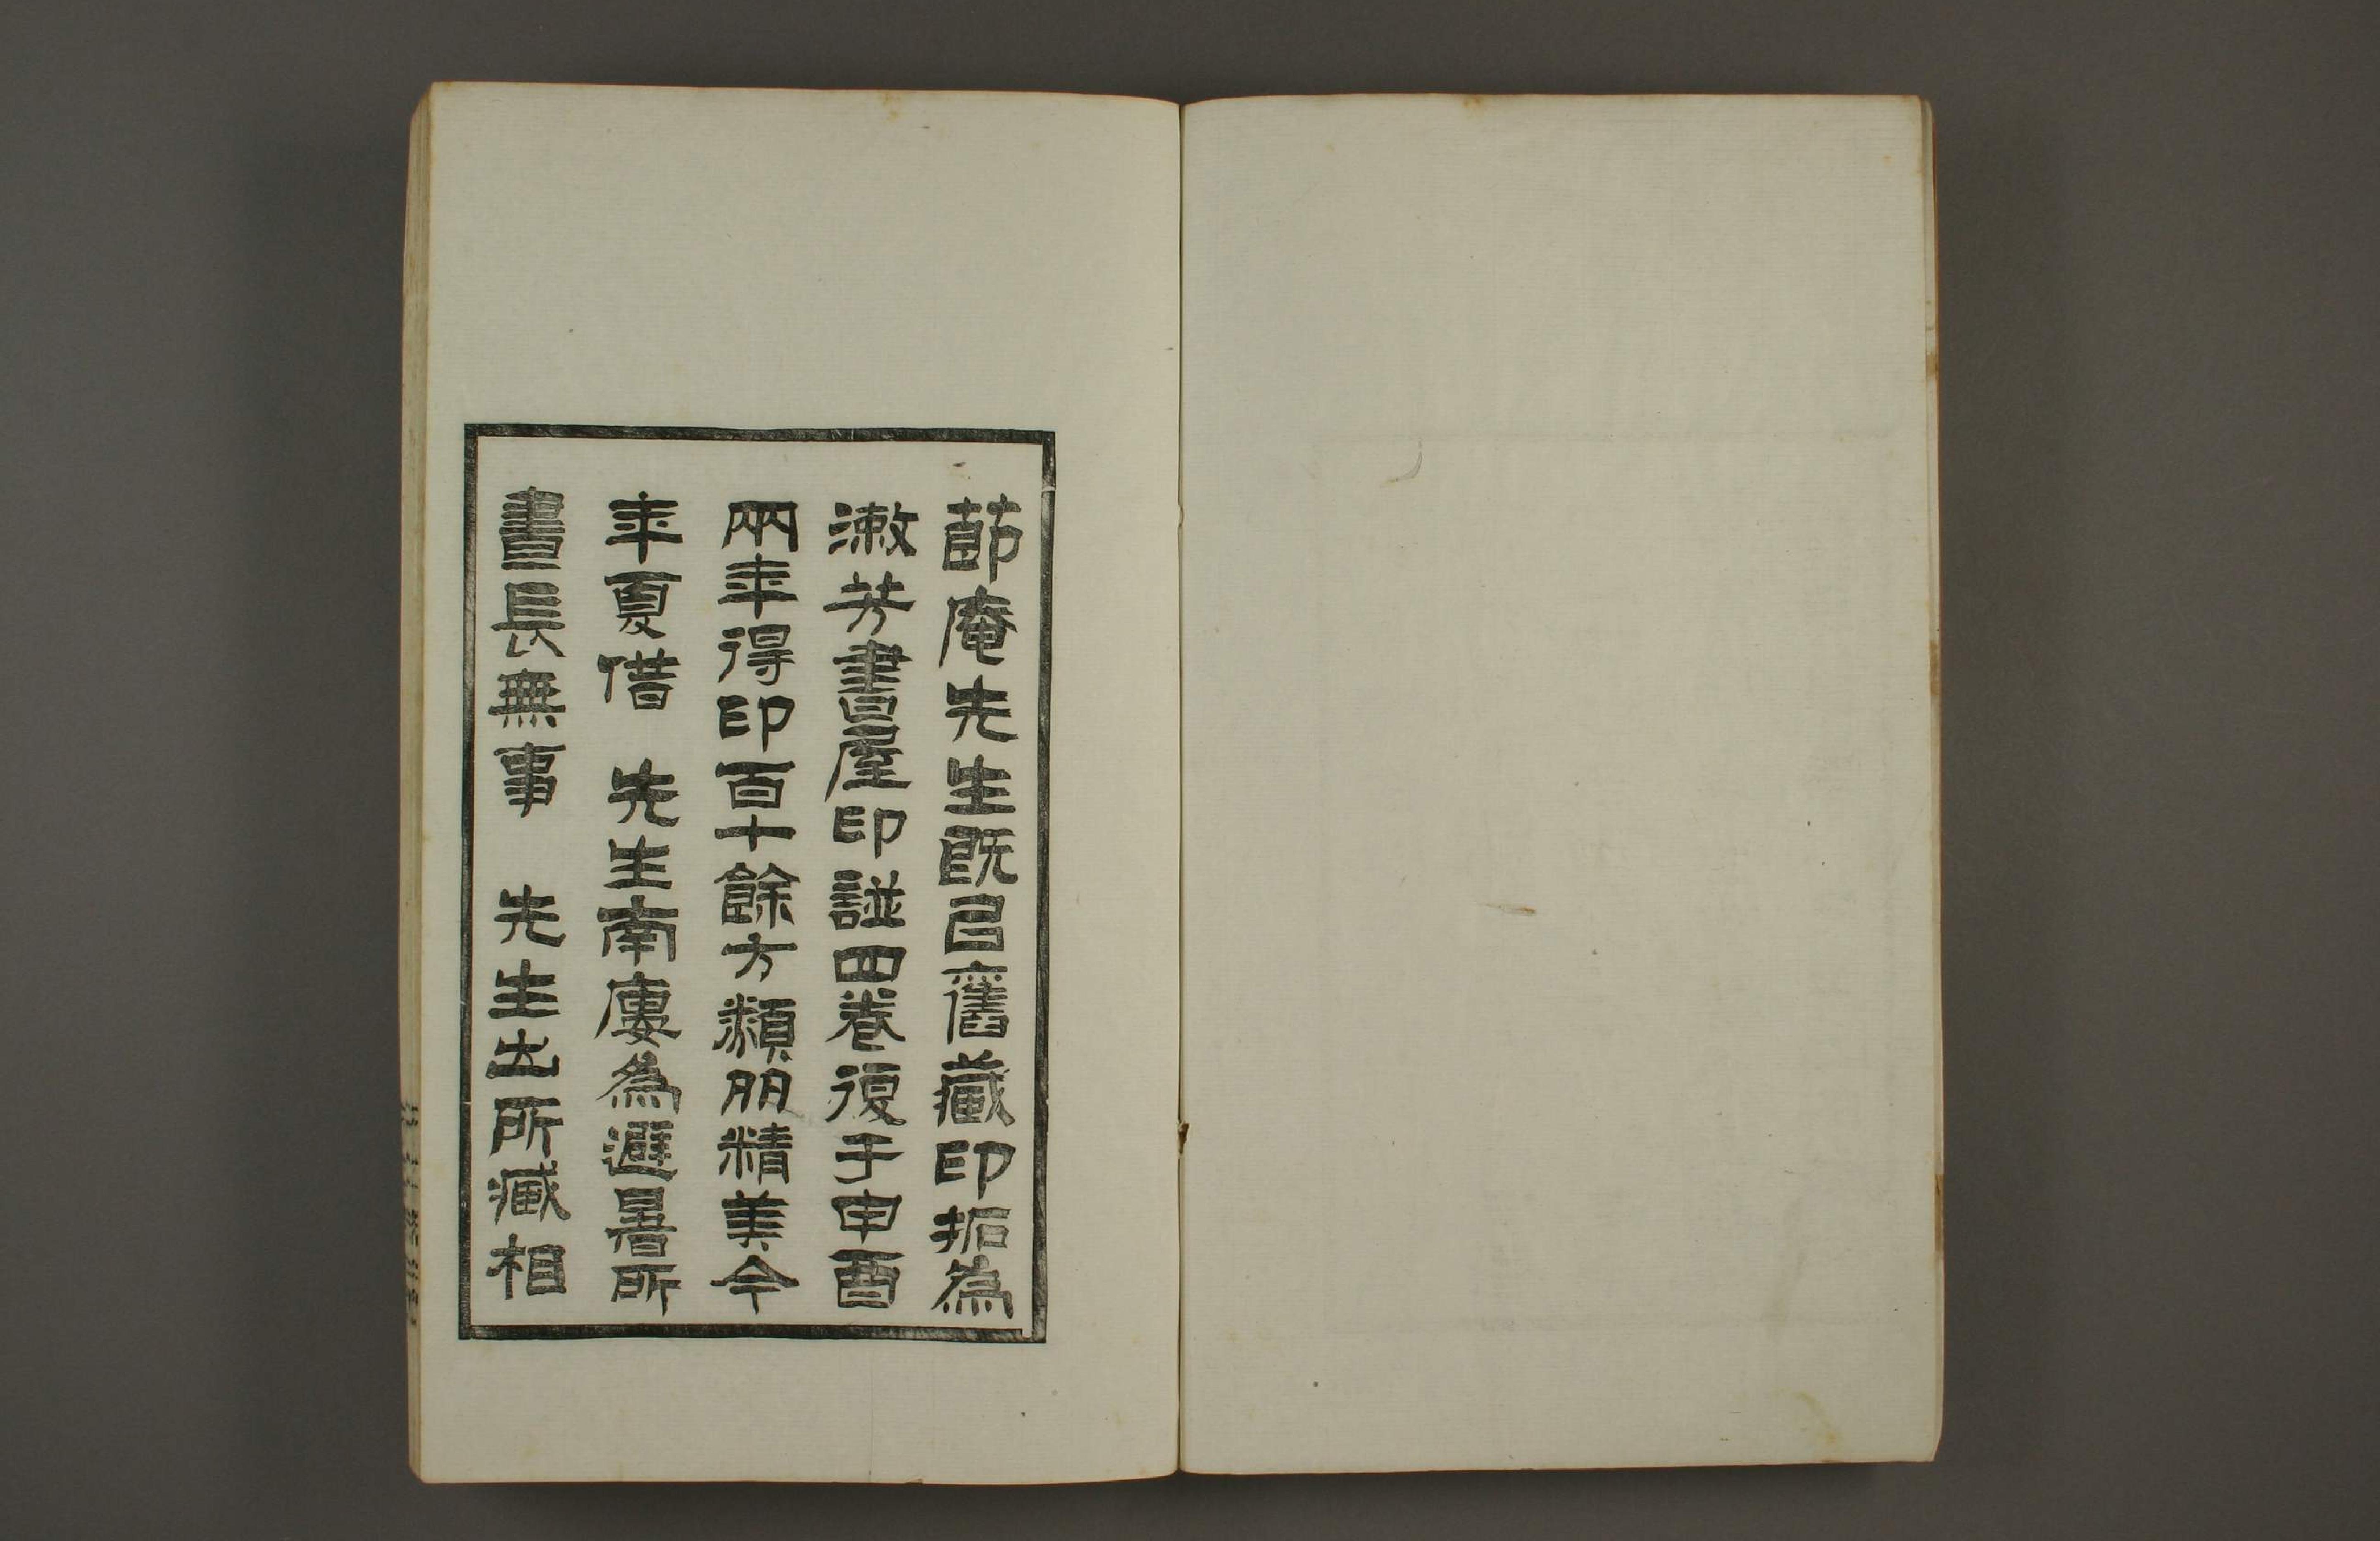 節庵先生既㠯舊藏印拓為
漱芳書屋印譜四卷復于申酉
兩年得印百十餘方類册精美今
年夏借　先生南廔為避暑所
晝長無事　先生出所臧相